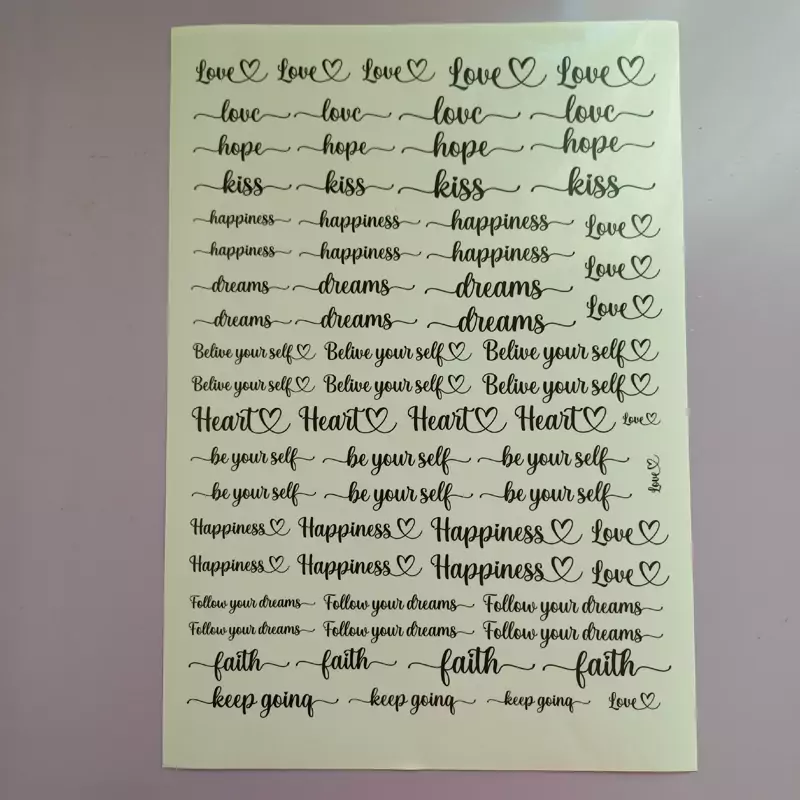 Love Love Love Love Love
love love love love
hope hope hope hope
kiss kiss kiss kiss
happiness happiness happiness Love
happiness happiness happiness
Love
dreams dreams dreams
Love
dreams dreams dreams
Belive your self Belive your self Belive your self
Belive your self Belive your self Belive your self
Heart Heart Heart Heart Love
be your self be your self be your self
Love
be your self be your self be your self
Happiness Happiness Happiness Love
Happiness Happiness Happiness Love
Follow your dreams Follow your dreams Follow your dreams
Follow your dreams Follow your dreams Follow your dreams
faith faith faith faith
keep going keep going keep going Love